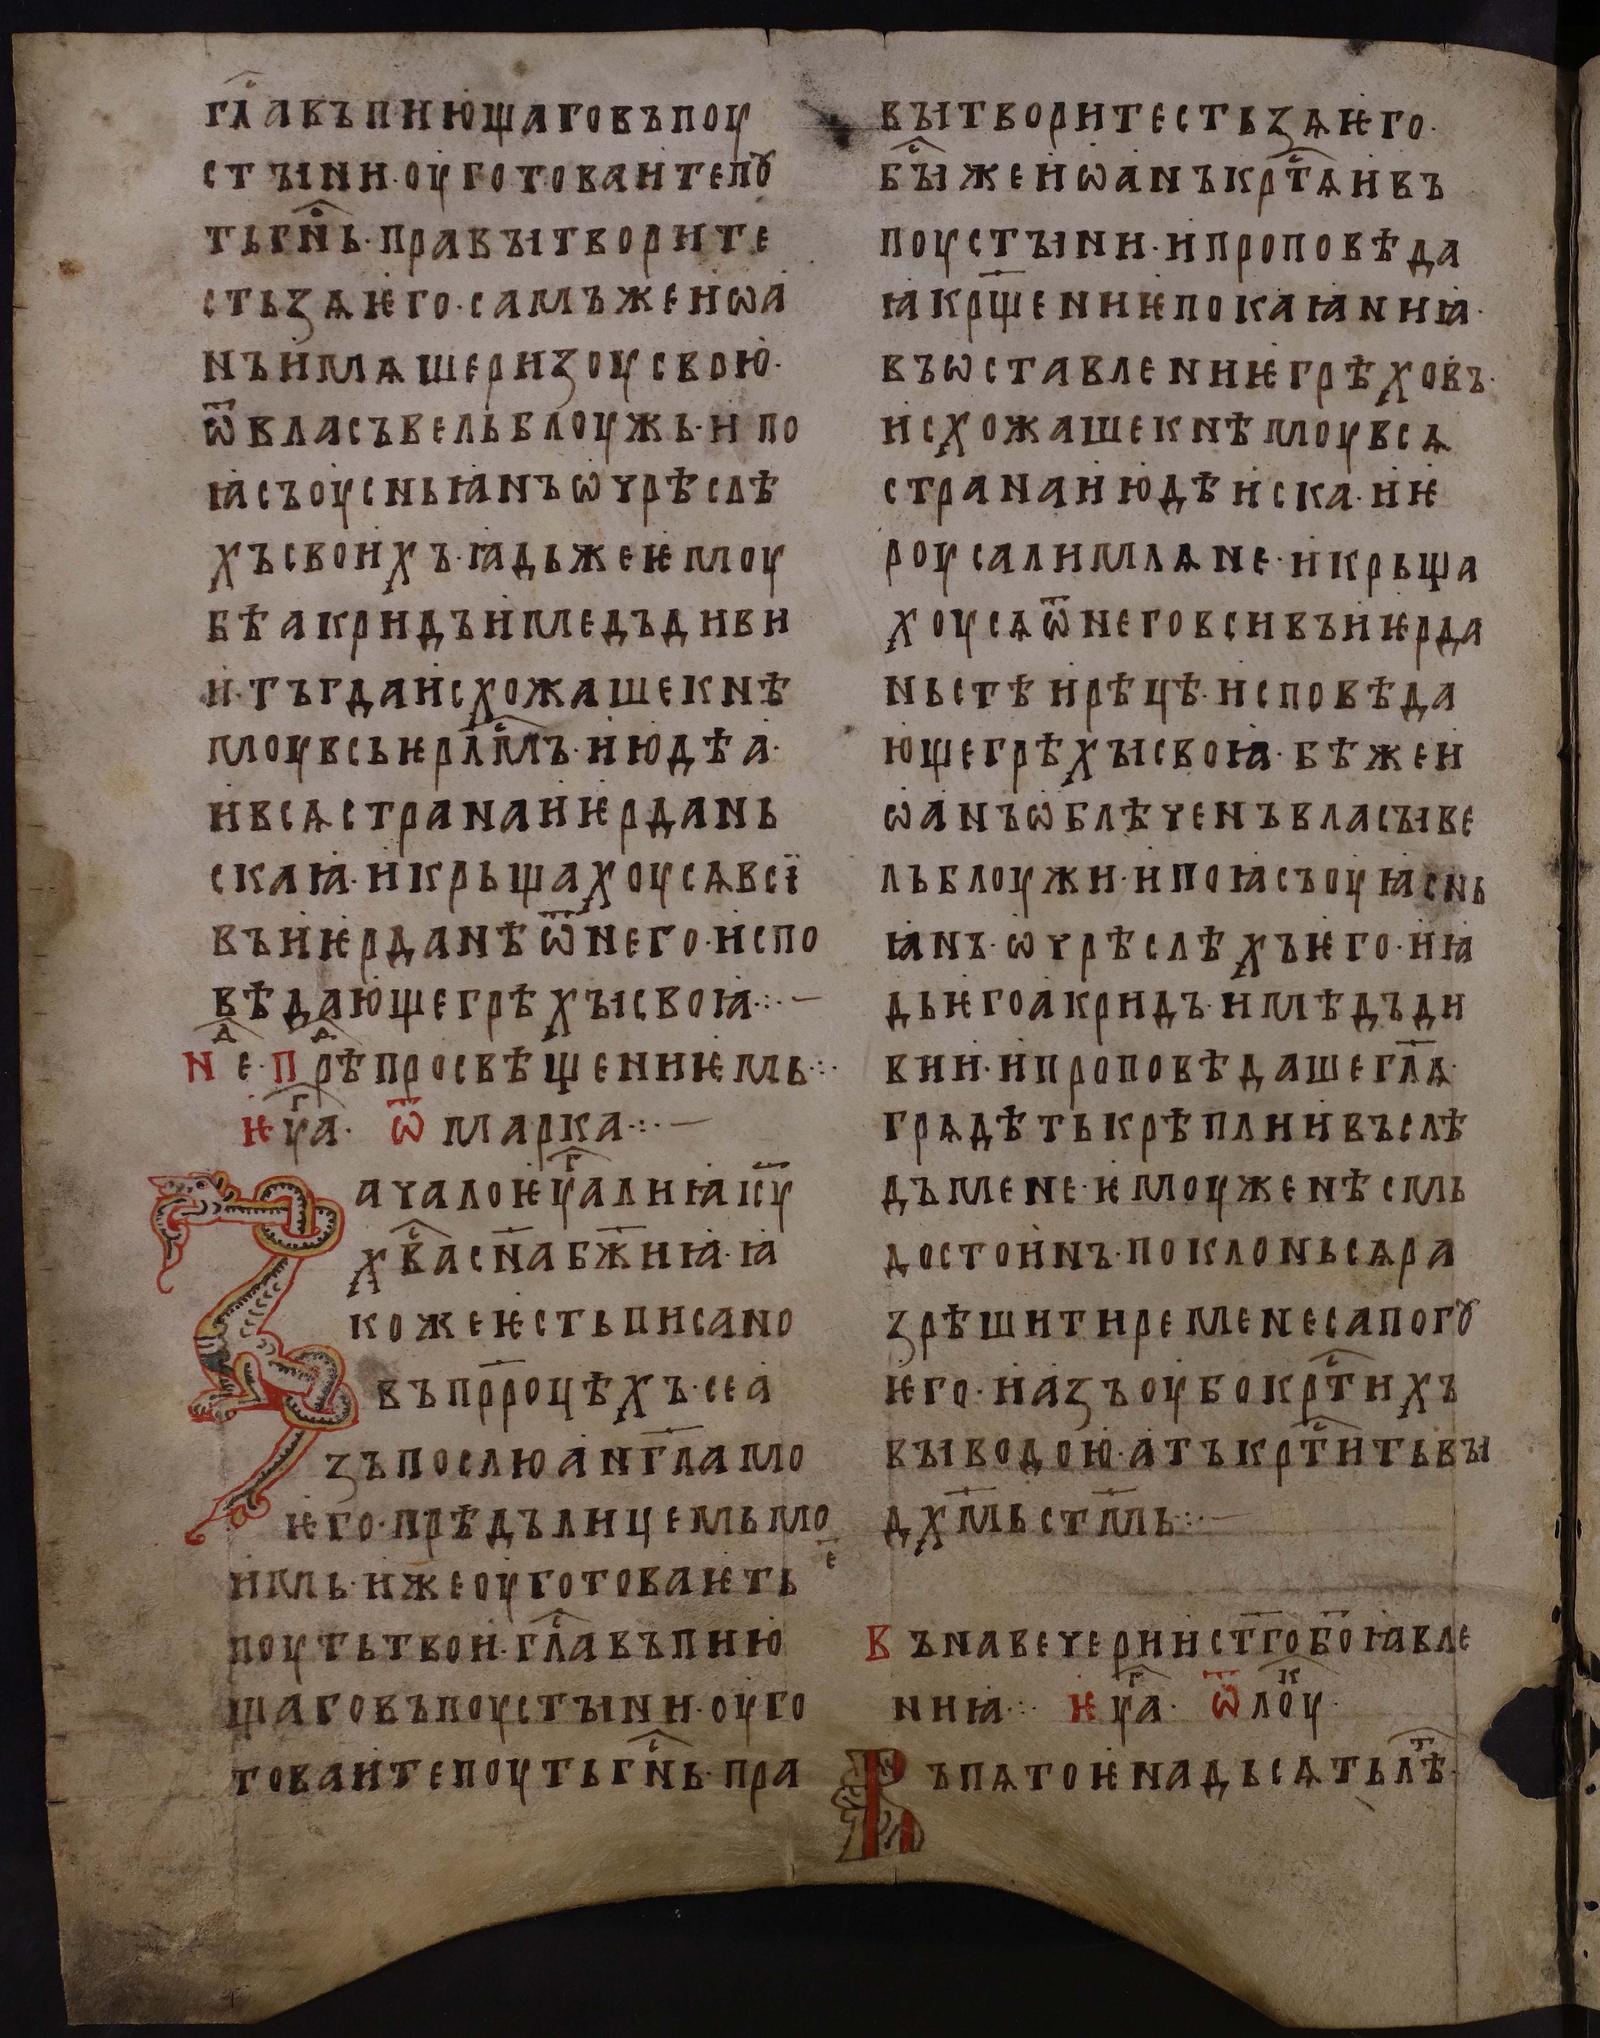 гл҇авъпиюшагвъпоу
стыни·оуготоваитепꙋ
тьгн҇ь·правытворите
стьзѧѥго·самъжеиѡа
нъимѧшеризоусвою·
ѿвласъвельблоужь·ипо
ꙗсъоусньꙗнъѡчрѣслѣ
хъсвоихъ·ꙗдьжеѥмоу
бѣакридъимедъдиви
и·тъгдаисхожашекнѣ
моувсьѥрлм҇ъ·июдѣа·
ивсѧстранаиѥрдань
скаꙗ·икрьщахоусѧвсї
въиѥрданѣѿнего·испо
вѣдающегрѣхысвоꙗ·:·–
неⷣ·прⷣѣпросвѣщенниѥмь·:·
ѥуⷢа· ѿ марка·:·–
ачалоѥуⷢалиꙗі҃су
хв҇асн҃абж҃иꙗ·ꙗ
кожеѥстьписано
въпрⷬ҃роцѣхъ·сеа
зъпослюанг҃ламо
ѥго·прѣдълицемьмо
имь·ижеоуготоваѥть
поутьтвои·гл҇авъпию
щаговъпоустыни·оуго
товаитепоутьгн҇ь·пра
вытворитестьзѧѥго·
бы҇жеиѡанъкрт҇ѧивъ
поустыни·ипроповѣда
ꙗкрщ҃ениѥпокаꙗниꙗ·
въѡставлениѥгрѣховъ·
исхожашекнѣмоувсѧ
странаиюдѣиска·иѥ
роусалимлѧне·икрьща
хоусѧѿнеговсивъиѥрда
ньстѣирѣцѣ·исповѣда
ющегрѣхысвоꙗ·бѣжеи
ѡанъѡблѣченъвласыве
льблоужи·ипоꙗсъоуꙗснь
ꙗнъ·ѡчрѣслѣхъѥго·иꙗ
дьѥгоакридъ·имѣдъди
вии·ипроповѣдашегл҃ѧ·
грѧдѣтькрѣплиивъслѣ
дъмене·ѥмоуженѣсмь
достоинъ·поклоньсѧра
зрѣшитиременесапогꙋ
ѥго·иазъоубокрт҇ихъ
выводою·атъкрт҇итьвы
дх҃мьстм҃ь·:·–
Вънавечериист҃гоб҃оꙗвле
ниꙗ·:· ѥуⷢа· ѿлоⷦу·
Въпѧтоѥнадьсѧтьлⷮѣ·